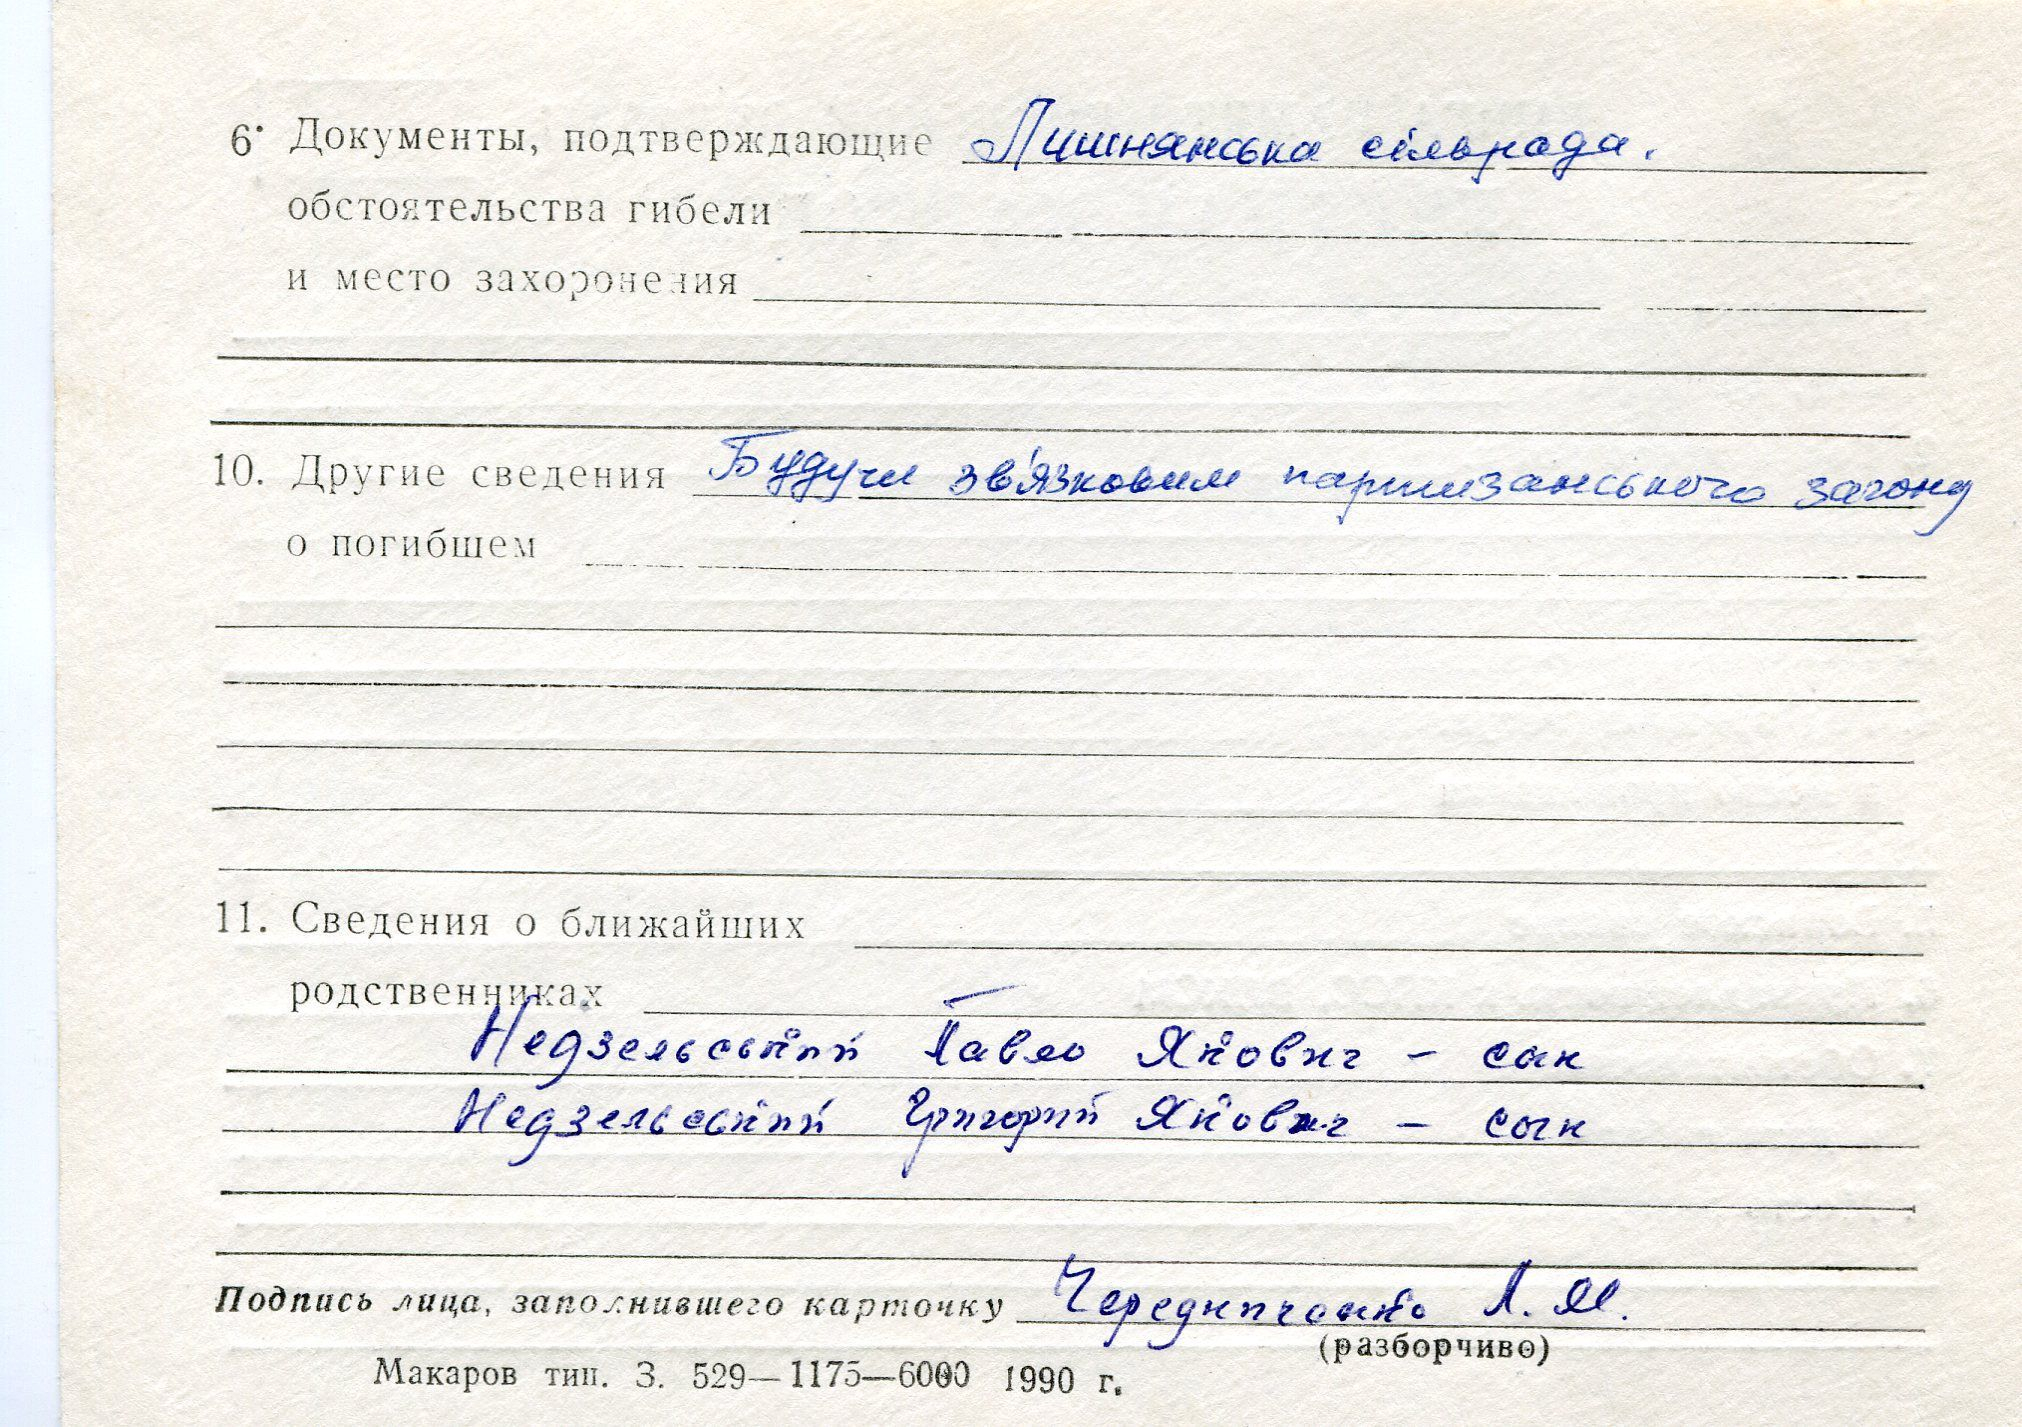 6. Документы, подтверждающие Лишнянська сільрада.
обстоятельства гибели
и место захоронения
10. Другие сведения Будучи зв'язковим партизанського загону
о погибшем
11. Сведения о ближайших
родственниках
Недзельський Павло Якович - сын
Недзельський Григорий Якович - сын
Подпись лица, заполнившего карточку Чередниченко Л. М.
(разборчиво)
Макаров тип. З. 529—1175—6000 1990 г.